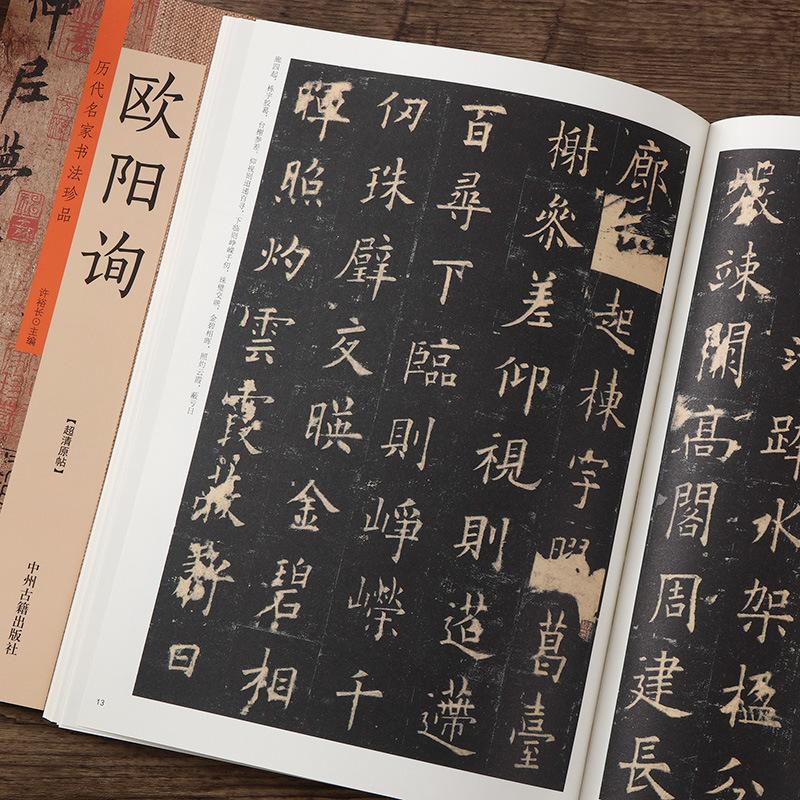 仲尼夢
历代名家书法珍品
欧阳询
许裕长⊙主编
【超清原帖】
中州古籍出版社
跨水架楹分
巖竦闕高閣周建長
廊起棟宇葛臺
榭參差仰視則迢遰
百尋下臨則崢嶸千
仞珠璧交暎金碧相
暉照灼雲霞蔽虧日
廊四起，栋宇胶葛，台榭参差。仰视则迢递百寻，下临则峥嵘千仞，珠璧交映，金碧相晖，照灼云霞，蔽亏日
13